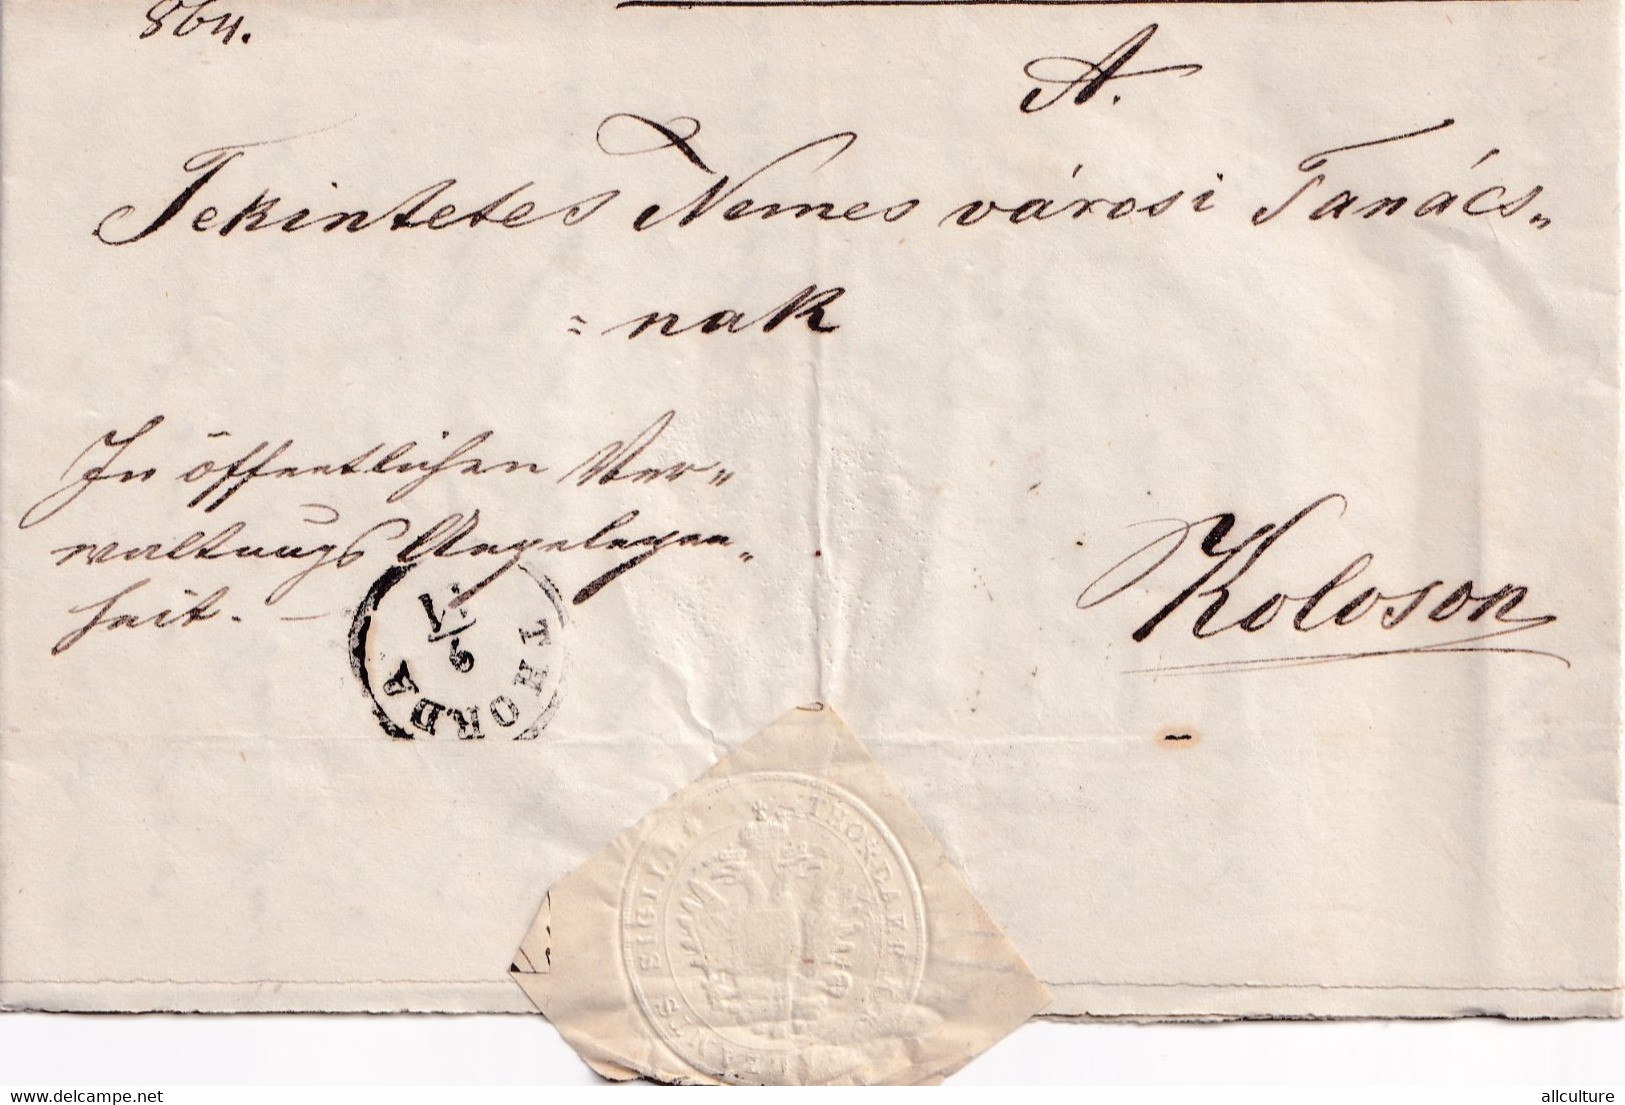 864.
A.
Tekintetes Nemes városi Tanács„
=nak
In öffentlichen Ver„
waltungs Angelegen„
heit. –
Koloson
THORDA
9/11
SIGILL
THORDAKE
delcampe.net
allculture